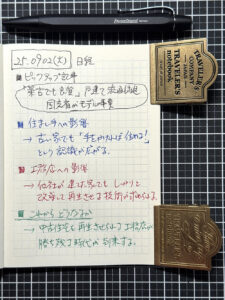 25.09.02(火) 日経
■ ピックアップ記事
「築古でも出番」戸建て流通促進
国交省がモデル事業
■ 住まい手への影響
→ 古い家でも「手を入れれば住める!」
という認識が広がる。
■ 工務店への影響
→ 他社が建てた家でも しっかりと
改修して再生させる技術が求められる。
■ これから どうなるか
→ 中古住宅を再生させられる工務店が
勝ち残る時代が到来する。
TRAVELER'S
COMPANY
JAPAN
TRAVELER'S
notebook